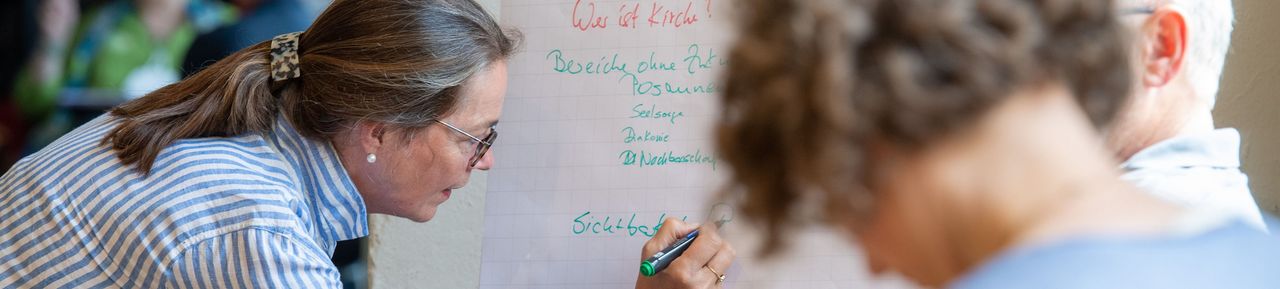 Wer ist Kirche?
Bereiche ohne
Posaunen
Seelsorge
Diakonie
Nachbarschaf
Sichtba